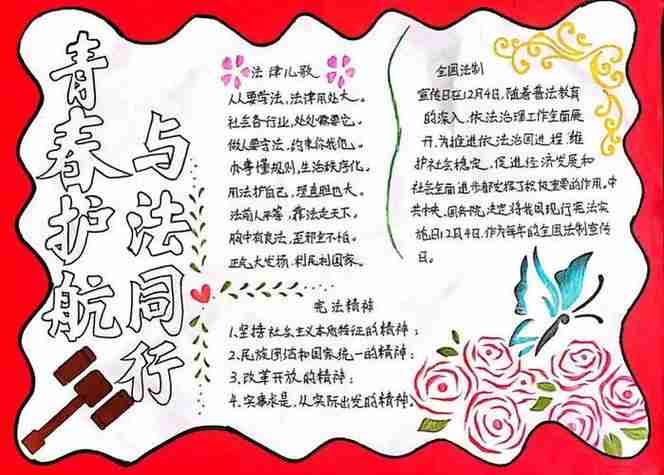 青春护航
与法同行
法律儿歌
人人要守法，法律用处大。
社会各行业，处处需要它。
做人要言法，约束你我他。
办事懂规则，生活秩序化。
用法护自己，理直胆也大。
法前人平等，靠法走天下。
胸中有良法，至邪全不怕。
正气大发扬，利民利国家。
全国法制
宣传日在12月4日，随着普法教育
的深入，依法治理工作全面展
开，为推进依法治国进程，维
护社会稳定，促进经济发展和
社会全面进步都发挥了极极重要的作用。中
共中央、国务院，决定将我国现行宪法实
施日12月4日，作为每年的全国法制宣传
日。
宪法精神
1.坚持社会主义本质特征的精神；
2.民族团结和国家统一的精神；
3.改革开放的精神；
4.实事求是，从实际出发的精神。